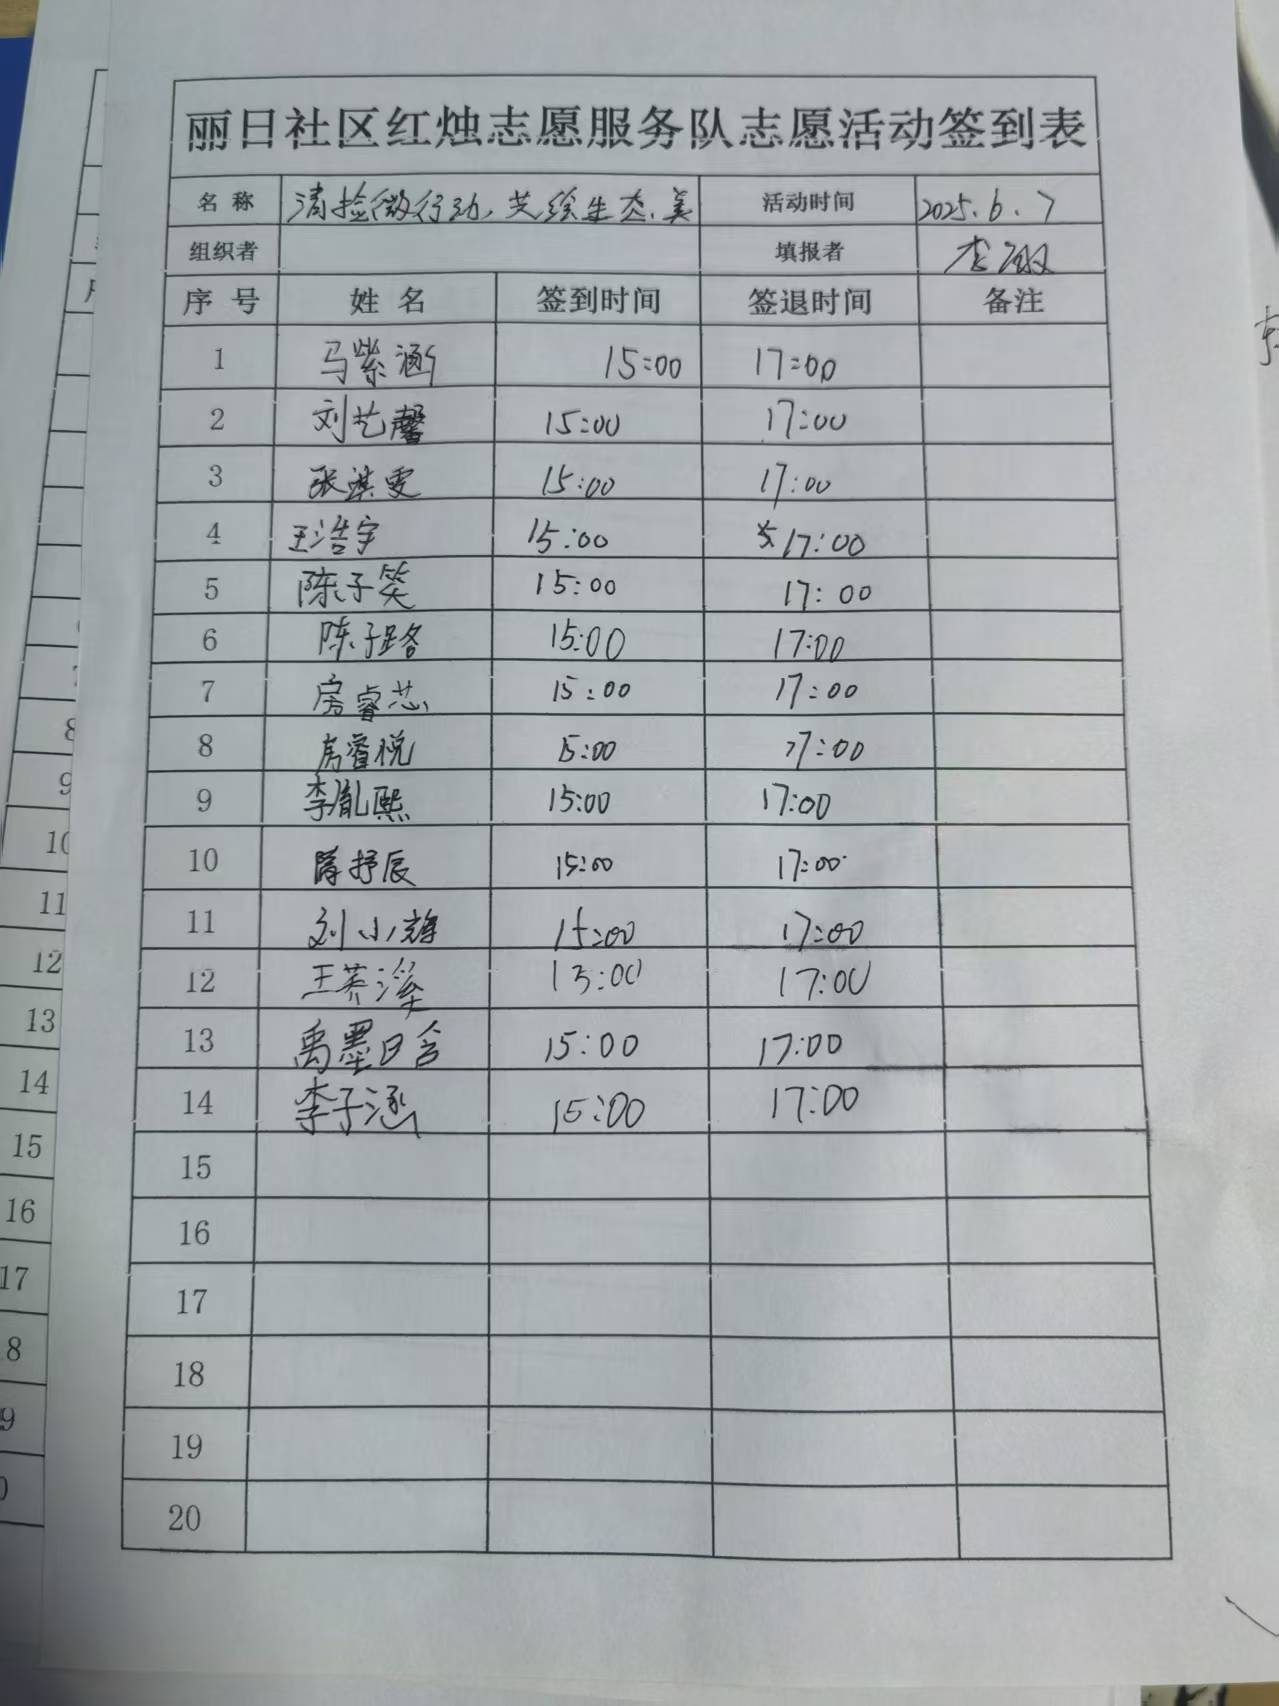 丽日社区红烛志愿服务队志愿活动签到表
名称 清捡微行动，艾绘生态美 活动时间 2025.6.7
组织者 填报者 李敏
序号 姓名 签到时间 签退时间 备注
1 马紫涵 15:00 17:00
2 刘艺馨 15:00 17:00
3 张淇雯 15:00 17:00
4 王浩宇 15:00 17:00
5 陈子笑 15:00 17:00
6 陈子路 15:00 17:00
7 房睿芯 15:00 17:00
8 房睿悦 15:00 17:00
9 李胤熙 15:00 17:00
10 抒辰 15:00 17:00
11 刘小 15:00 17:00
12 王 15:00 17:00
13 禹墨晗 15:00 17:00
14 李子涵 15:00 17:00
15
16
17
18
19
20
8
9
10
11
12
13
14
15
16
17
8
9
0